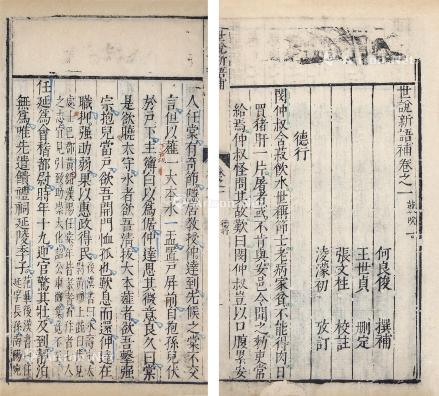 世說新語補卷之一
何良俊 撰補
王世貞 刪定
張文柱 校註
凌濛初 攷訂
德行
閔仲叔含菽飲水世稱節士老病家貧不能得肉日
買豬肝一片屠者或不肯與安邑令聞之勑吏常
給焉仲叔怪問其故歎曰閔仲叔豈以口腹累安
世說新語補
人任棠有奇節隱居教授仲達到先候之棠不交
言但以薤一大本水一盂置戶屏前自抱孫兒伏
於戶下主簿白以為倨仲達思其微意良久曰棠
是欲曉太守水者欲吾清拔大本薤者欲吾擊強
宗抱兒當戶欲吾開門恤孤也歎息而還仲達在
職抑強助弱果以惠政得民
任延為會稽都尉時年十九迎官驚其壯及到靜泊
無為唯先遣饋禮祠延陵季子